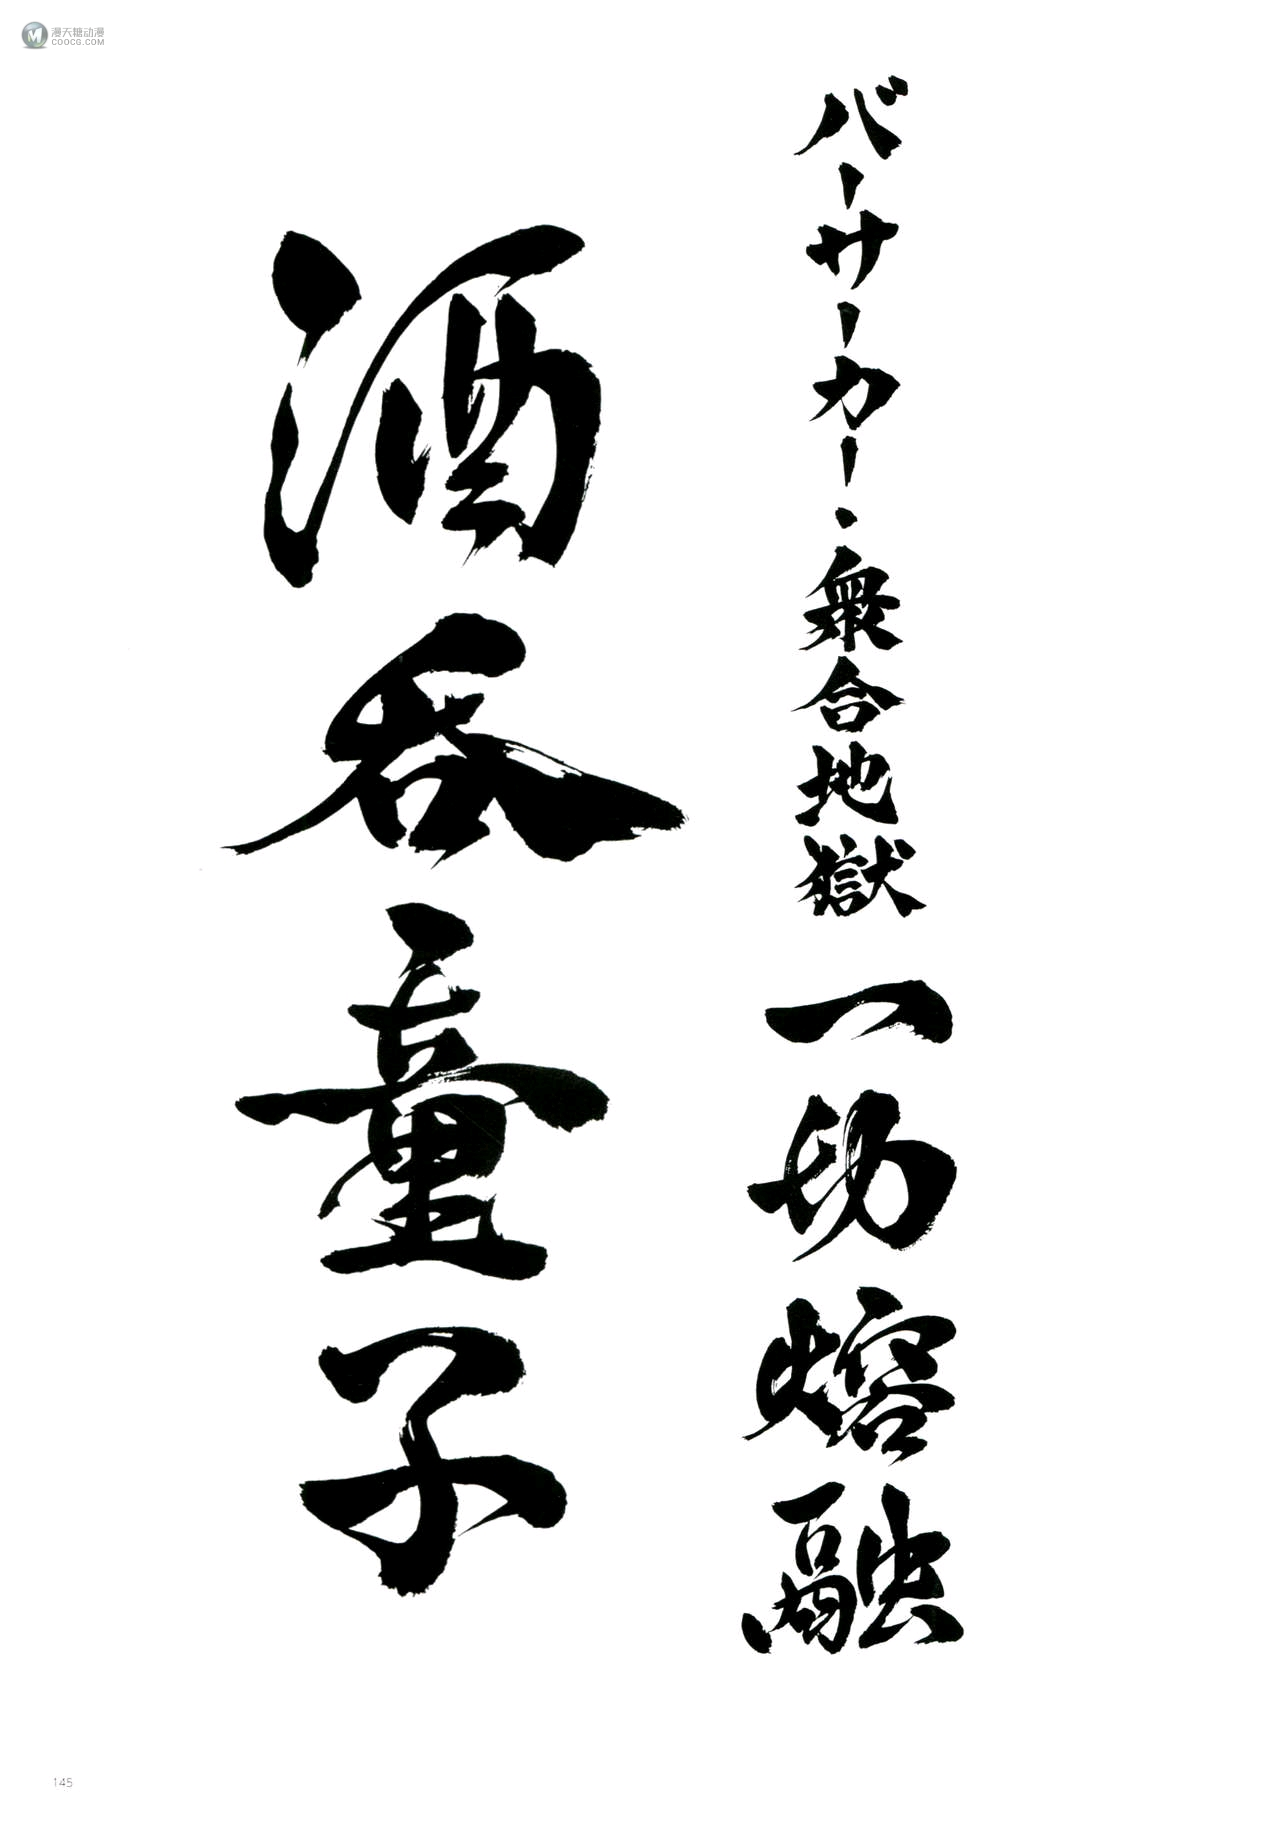 漫天糖动漫
COOCG.COM
バーサーカー・衆合地獄 一切熔融
酒呑童子
145